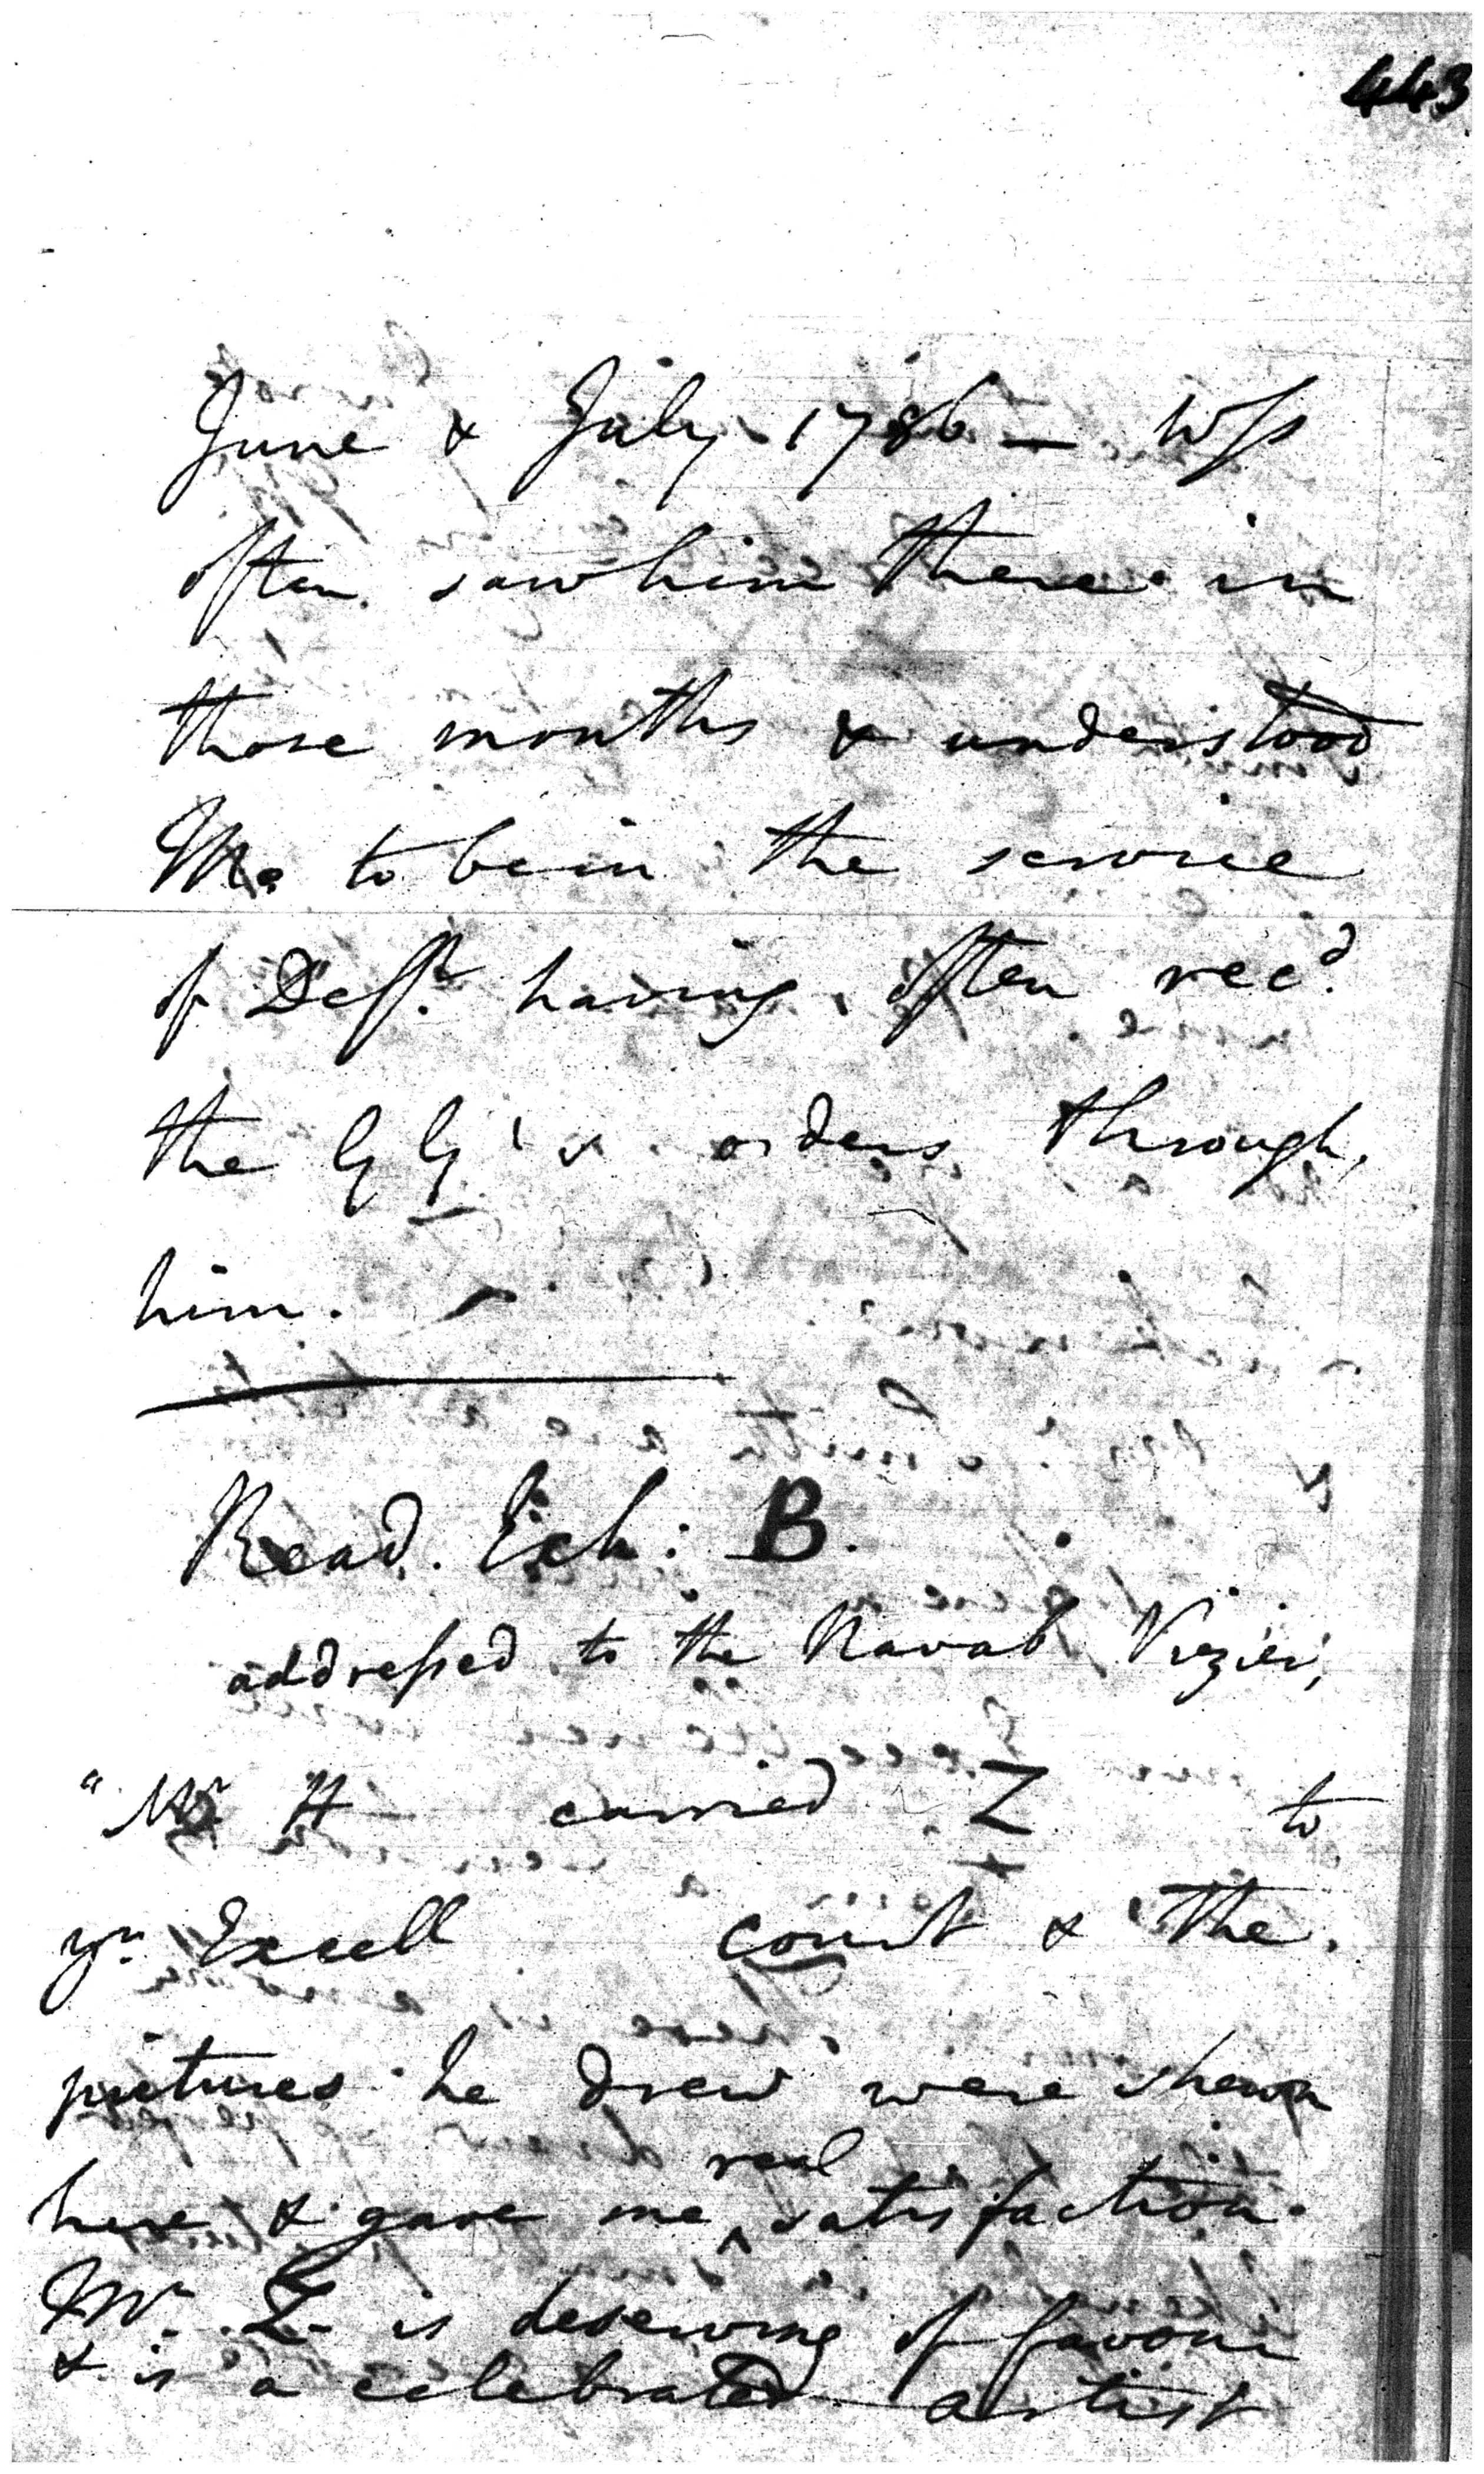 443
June & July 1786 — Wss
often saw him there in
those months & understood
Mo to be in the service
of Deft. having often recd.
the GG's orders through
him.
Read Exh: B.
addressed to the Navab Vizier,
"Mr H carried Z to
yr Excell court & the
pictures he drew were shewn
real
here & gave me ^ satisfaction.
Mr. Z is deserving of favour
& is a celebrated artist